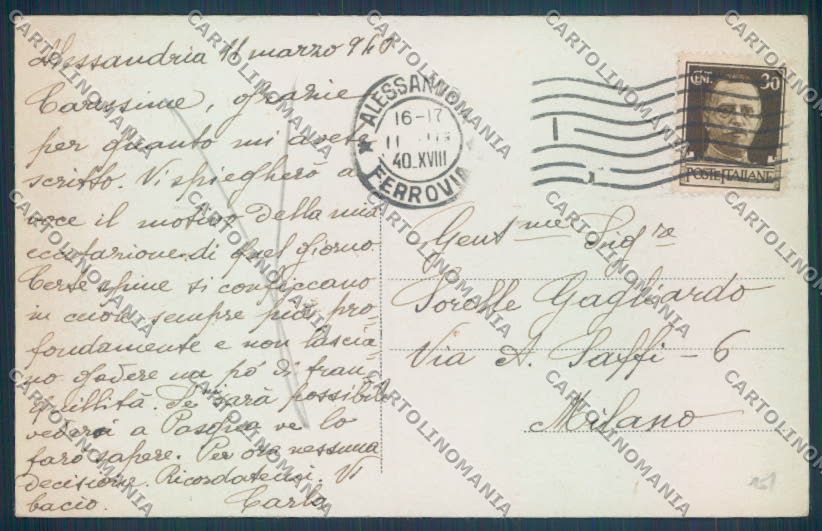 Alessandria 11 marzo 940
Carissime, grazie
per quanto mi avete
scritto. Vi spiegherò a
voce il motivo della mia
eccitazione di quel giorno
Certe spine si conficcano
in cuore sempre più pro
fondamente e non lascia-
no godere un pó di tran-
quillità. Se sarà possibile
vederci a Pasqua ve lo
farò sapere. Per ora nessuna
decisione. Ricordatemi. Vi
bacio. Carlo
ALESSANDRIA
16-17
40.XVIII
FERROVIA
CENT. 30
POSTE ITALIANE
Gent.me Sig.re
Sorelle Gagliardo
Via A. Saffi - 6
Milano
CARTOLINOMANIA